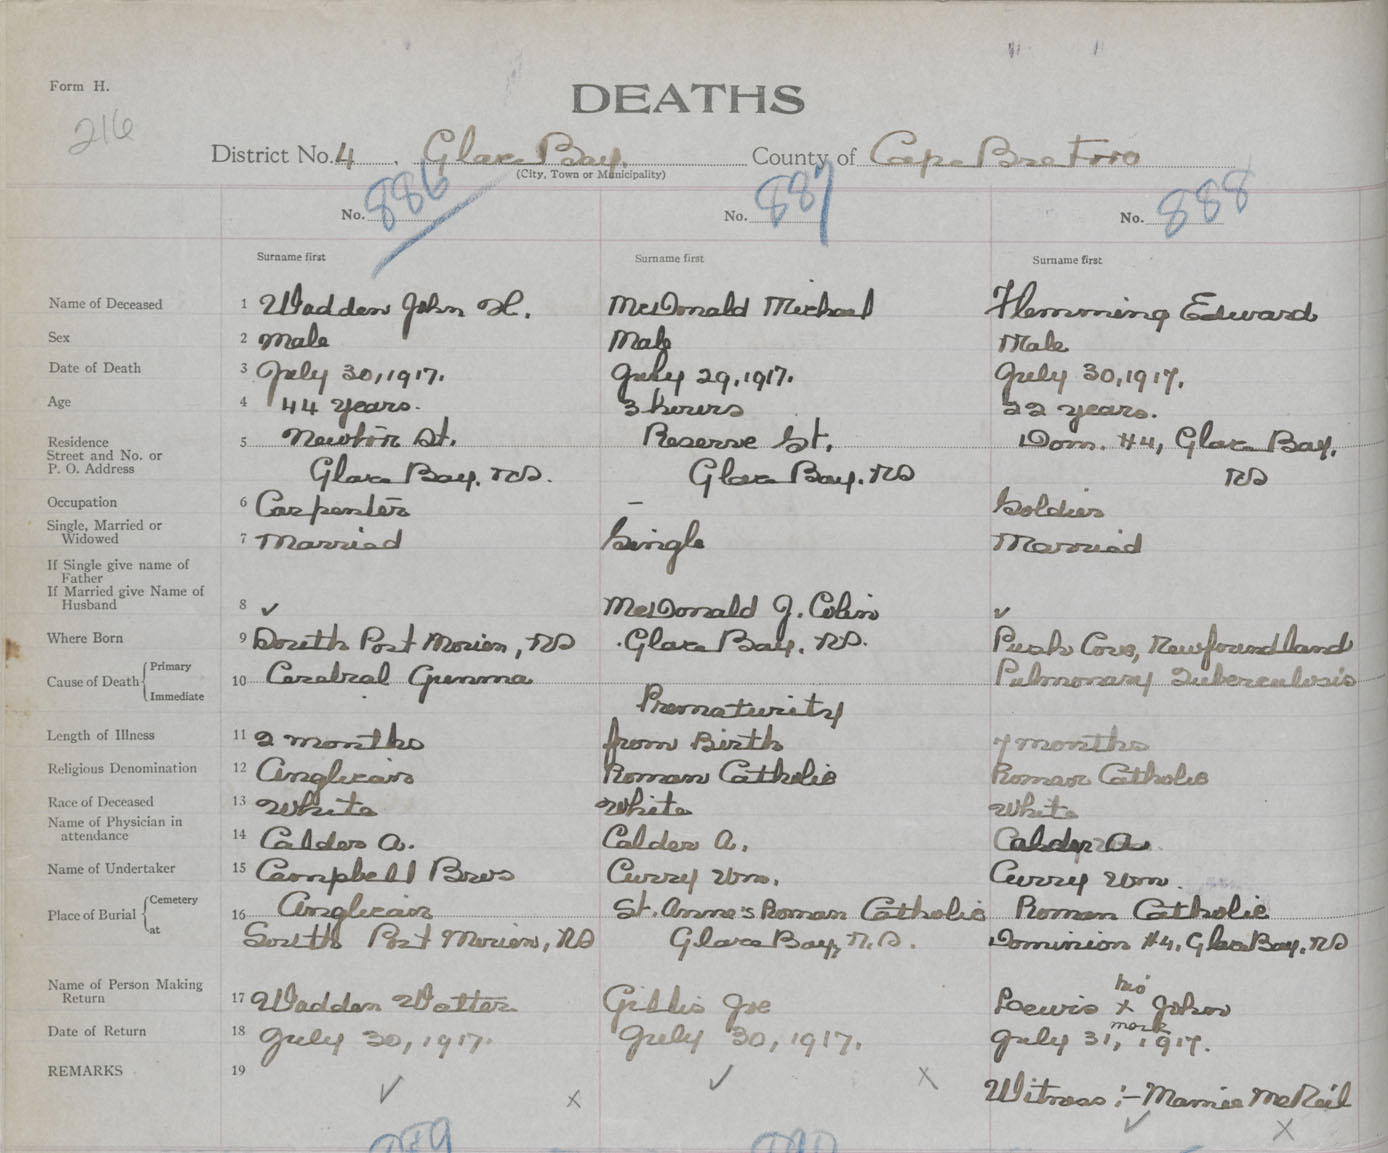 Form H.
216
DEATHS
District No. 4, Glace Bay. County of Cape Breton
(City, Town or Municipality)
No. 886 No. 887 No. 888
Surname first Surname first Surname first
Name of Deceased 1 Wadden John H. McDonald Michael Flemming Edward
Sex 2 Male Male Male
Date of Death 3 July 30, 1917. July 29, 1917. July 30, 1917.
Age 4 44 years. 3 hours 22 years.
Residence 5 Newton St. Reserve St. Dom. #4, Glace Bay.
Street and No. or
P. O. Address Glace Bay. NS. Glace Bay. NS NS
Occupation 6 Carpenter – Soldier
Single, Married or
Widowed 7 Married Single Married
If Single give name of
Father
If Married give Name of
Husband 8 ✓ McDonald J. Colin ✓
Where Born 9 South Port Morien, NS Glace Bay. NS. Cove, Newfoundland
Cause of Death Primary 10 Cerebral Gumma Pulmonary Tuberculosis
Immediate Prematurity
Length of Illness 11 2 months from Birth 7 months
Religious Denomination 12 Anglican Roman Catholic Roman Catholic
Race of Deceased 13 White White White
Name of Physician in
attendance 14 Calder A. Calder A. Calder A.
Name of Undertaker 15 Campbell Bros Curry Wm. Curry Wm.
Place of Burial Cemetery 16 Anglican St. Anne's Roman Catholic Roman Catholic
at South Port Morien, NS Glace Bay, N.S. Dominion #4, Glace Bay. NS
his
Name of Person Making
Return 17 Wadden Walter Gillis Joe Lewis x John
mark
Date of Return 18 July 30, 1917. July 30, 1917. July 31, 1917.
REMARKS 19
✓ x ✓ x Witness :- Mamie McNeil
✓ x
889 890